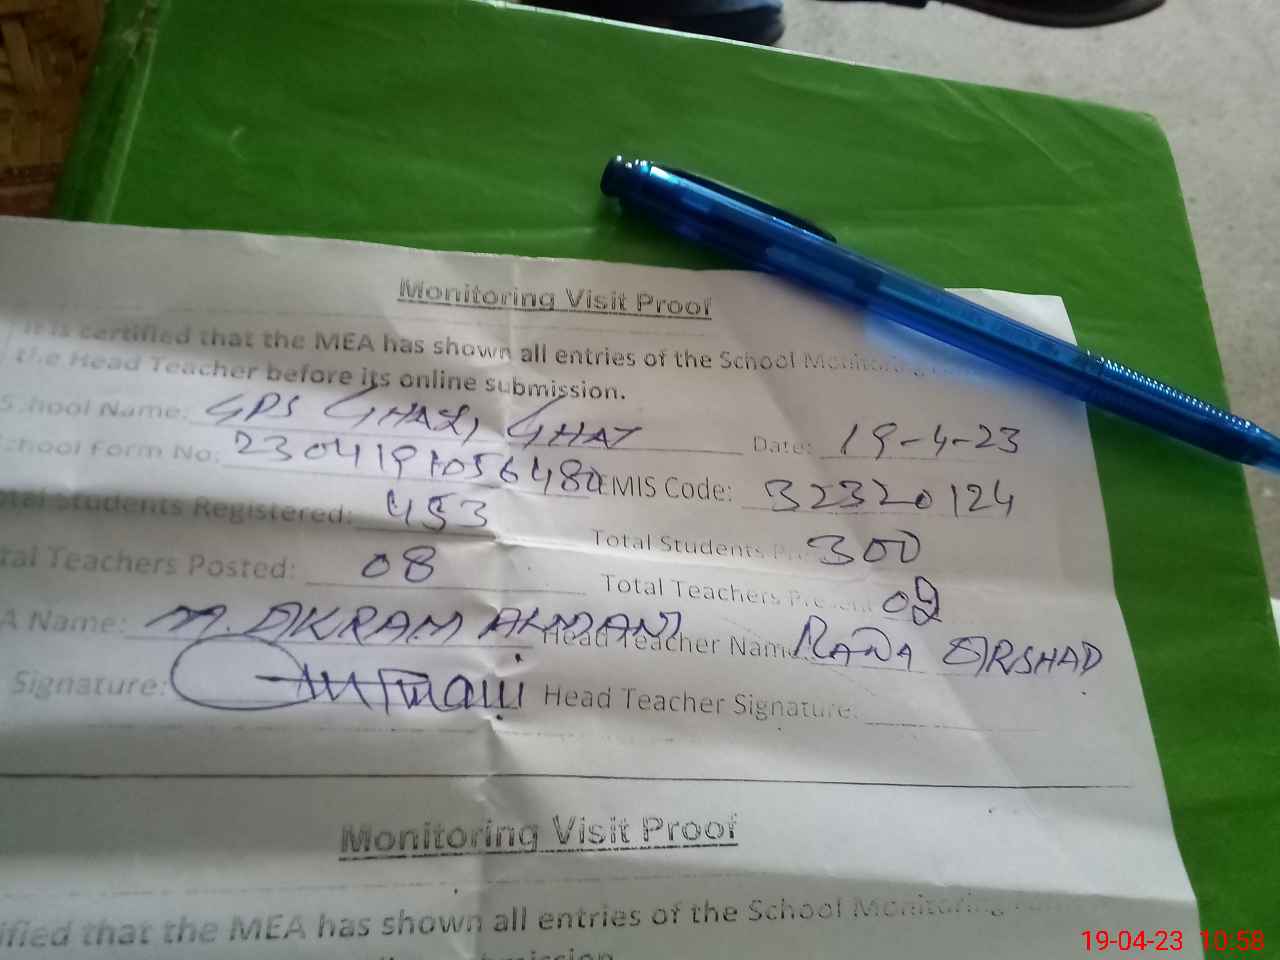 Monitoring Visit Proof
It is certified that the MEA has shown all entries of the School Monitoring
the Head Teacher before its online submission.
School Name: GPS GHAZI GHAT Date: 19-4-23
School Form No: EMIS Code: 32320124
Total Students Registered: 453 Total Students Pre 300
tal Teachers Posted: 08 Total Teachers Present
A Name: M. AKRAM Head Teacher Name RANA ARSHAD
Signature: Head Teacher Signature:
Monitoring Visit Proof
ified that the MEA has shown all entries of the School Monitoring
submission.
19-04-23 10:58